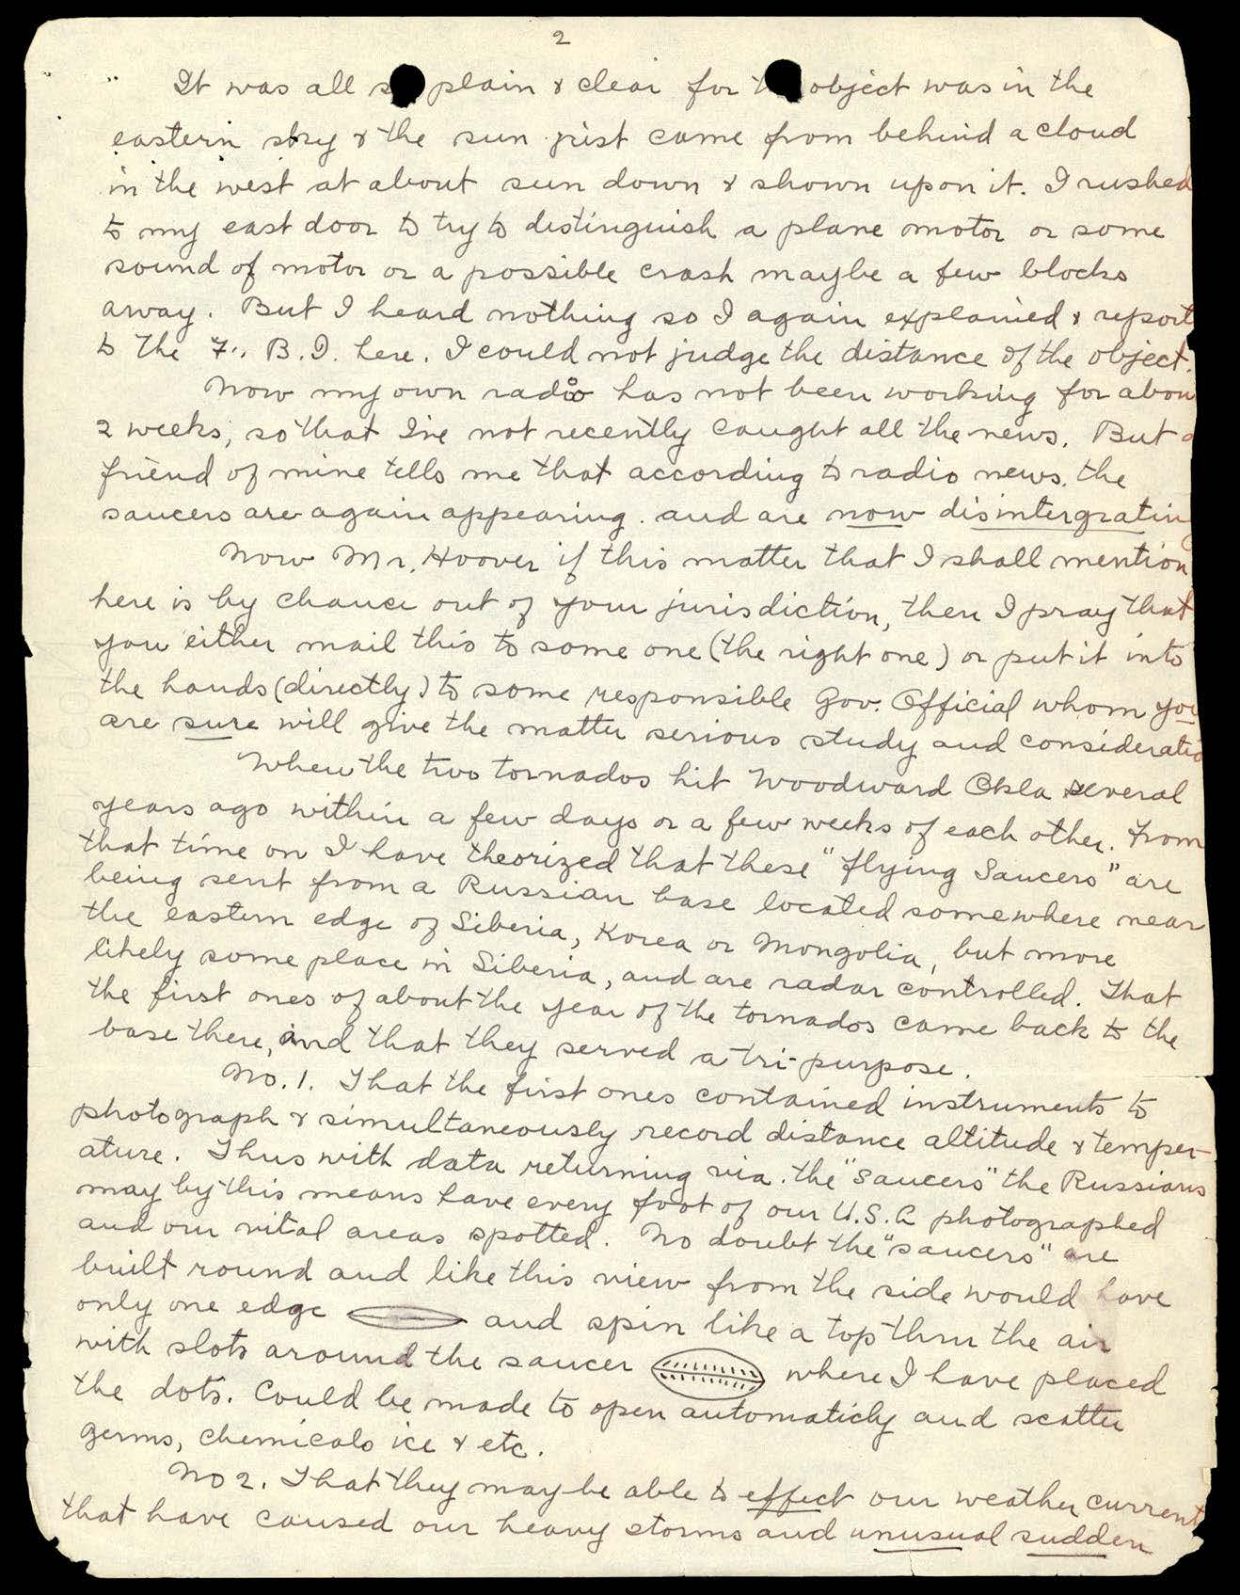 2
" It was all so plain & clear for the object was in the
eastern sky & the sun just came from behind a cloud
in the west at about sun down & shown upon it. I rushed
to my east door to try to distinguish a plane motor or some
sound of motor or a possible crash maybe a few blocks
away. But I heard nothing so I again explained & report
to the F. B. I. here. I could not judge the distance of the object.
Now my own radio has not been working for about
2 weeks, so that I've not recently caught all the news. But a
friend of mine tells me that according to radio news. the
saucers are again appearing. and are now disintergrating
Now Mr. Hoover if this matter that I shall mention
here is by chance out of your jurisdiction, then I pray that
you either mail this to some one (the right one) or put it into
the hands (directly) to some responsible Gov. Official whom you
are sure will give the matter serious study and consideratio
When the two tornados hit Woodward Okla several
years ago within a few days or a few weeks of each other. From
that time on I have theorized that these "flying Saucers" are
being sent from a Russian base located somewhere near
the eastern edge of Siberia, Korea or Mongolia, but more
likely some place in Siberia, and are radar controlled. That
the first ones of about the year of the tornados came back to the
base there, and that they served a tri-purpose.
No. 1. That the first ones contained instruments to
photograph & simultaneously record distance altitude & temper-
ature. Thus with data returning via. the "saucers" the Russians
may by this means have every foot of our U.S.A photographed
and our vital areas spotted. No doubt the "saucers" are
built round and like this view from the side would have
only one edge and spin like a top thru the air
with slots around the saucer where I have placed
the dots. Could be made to open automaticly and scatter
germs, chemicals ice & etc.
No 2. That they may be able to effect our weather current
that have caused our heavy storms and unusual sudden